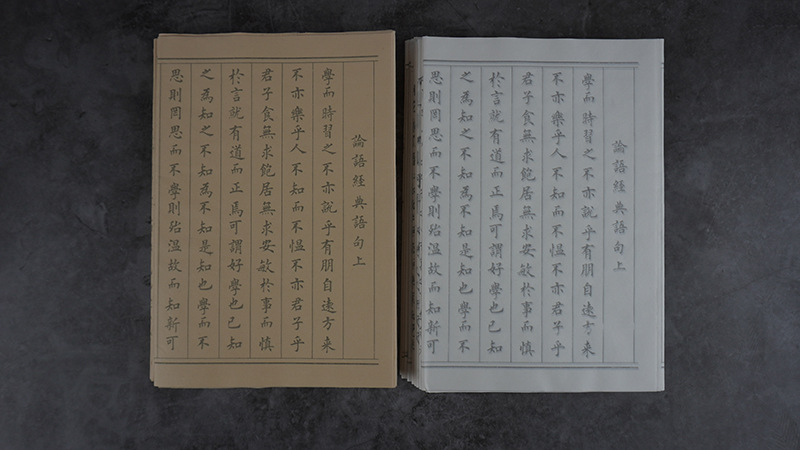 論語經典語句上
學而時習之不亦說乎有朋自遠方来
不亦樂乎人不知而不愠不亦君子乎
君子食無求飽居無求安敏於事而慎
於言就有道而正焉可謂好學也己知
之為知之不知為不知是知也學而不
思則罔思而不學則殆溫故而知新可
論語經典語句上
學而時習之不亦說乎有朋自遠方来
不亦樂乎人不知而不愠不亦君子乎
君子食無求飽居無求安敏於事而慎
於言就有道而正焉可謂好學也己知
之為知之不知為不知是知也學而不
思則罔思而不學則殆溫故而知新可